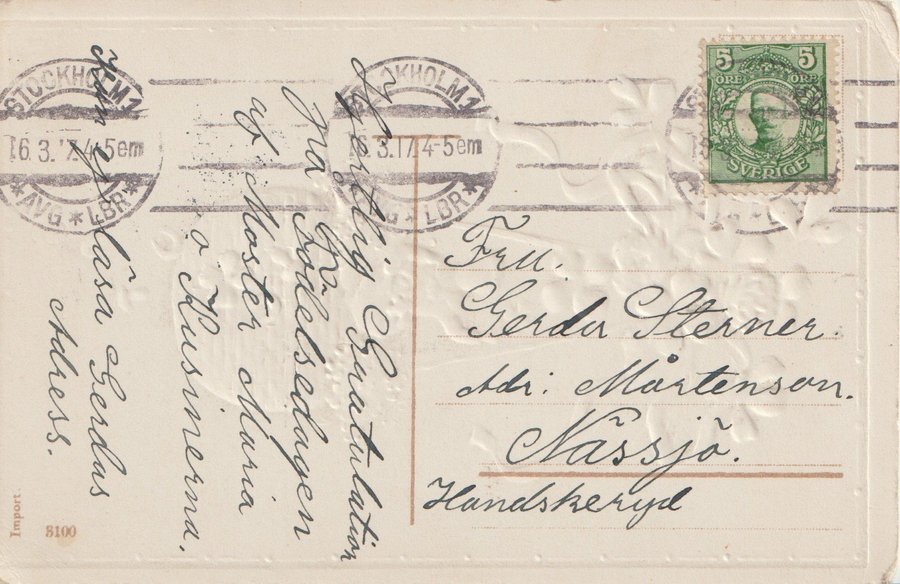 STOCKHOLM 1
16.3.17.4-5em
AVG * LBR
STOCKHOLM 1
16.3.17.4-5em
AVG * LBR
5 5
ÖRE ÖRE
SVERIGE
Hjertlig Gratulation
på Födelsedagen
af Moster Maria
o Kusinerna.
läsa Gerdas
Adress.
Fru.
Gerda Sterner.
Adr: Mårtenson.
Nässjö.
Handskeryd
Import.
3100